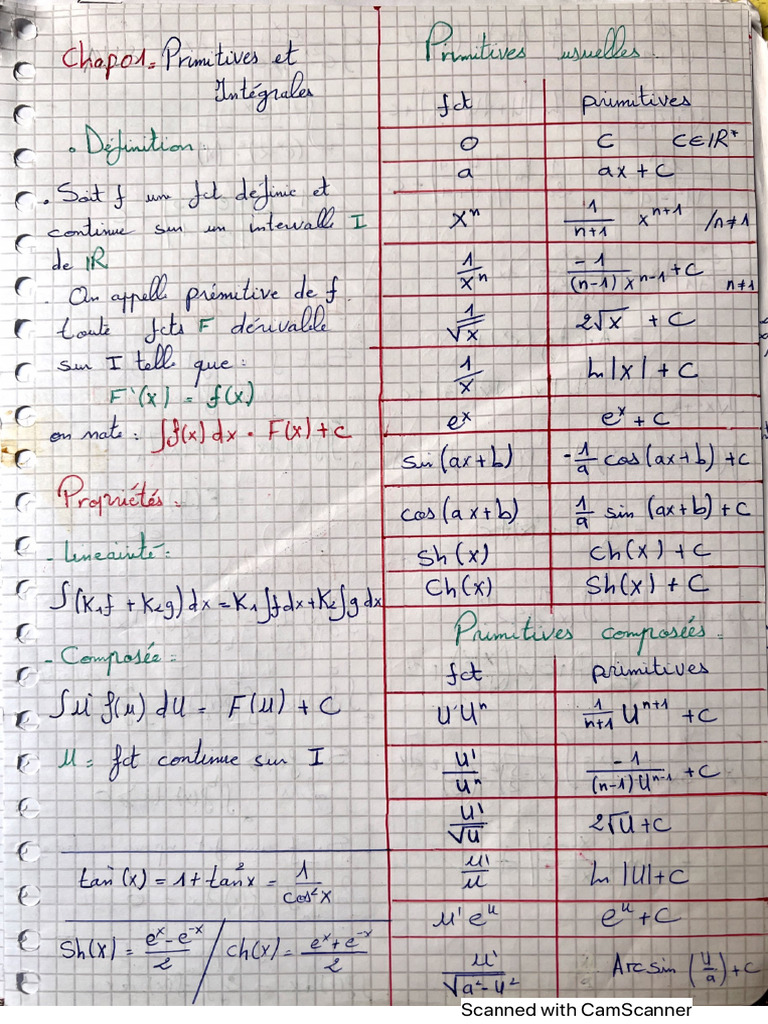 Chap01= Primitives et
Intégrales
• Définition:
• Soit f un fct définie et
continue sur un intervalle I
de IR
. On appelle prémitive de f
toute fcts F dérivable
sur I telle que :
F'(x) = f(x)
on note : ∫f(x) dx = F(x) + C
Propriétés =
- Linéairité =
∫(K₁f + K₂g) dx = K₁∫f dx + K₂∫g dx
- Composée =
∫u' f(u) du = F(u) + C
u = fct continue sur I
tan'(x) = 1 + tan²x = 1/cos²x
Sh(x) = (eˣ - e⁻ˣ)/2 / ch(x) = (eˣ + e⁻ˣ)/2
Primitives usuelles :
fct primitives
0 C C∈IR*
a ax + C
xⁿ 1/(n+1) xⁿ⁺¹ /n≠1
1/xⁿ -1/((n-1) xⁿ⁻¹) + C n≠1
1/√x 2√x + C
1/x ln|x| + C
eˣ eˣ + C
sin(ax+b) -1/a cos(ax+b) + C
cos(ax+b) 1/a sin(ax+b) + C
Sh(x) Ch(x) + C
Ch(x) Sh(x) + C
Primitives composées =
fct primitives
U'Uⁿ 1/(n+1) Uⁿ⁺¹ + C
U'/Uⁿ -1/((n-1) Uⁿ⁻¹) + C
U'/√U 2√U + C
u'/u ln |U| + C
u'eᵘ eᵘ + C
u'/√(a²-u²) Arcsin (u/a) + C
Scanned with CamScanner